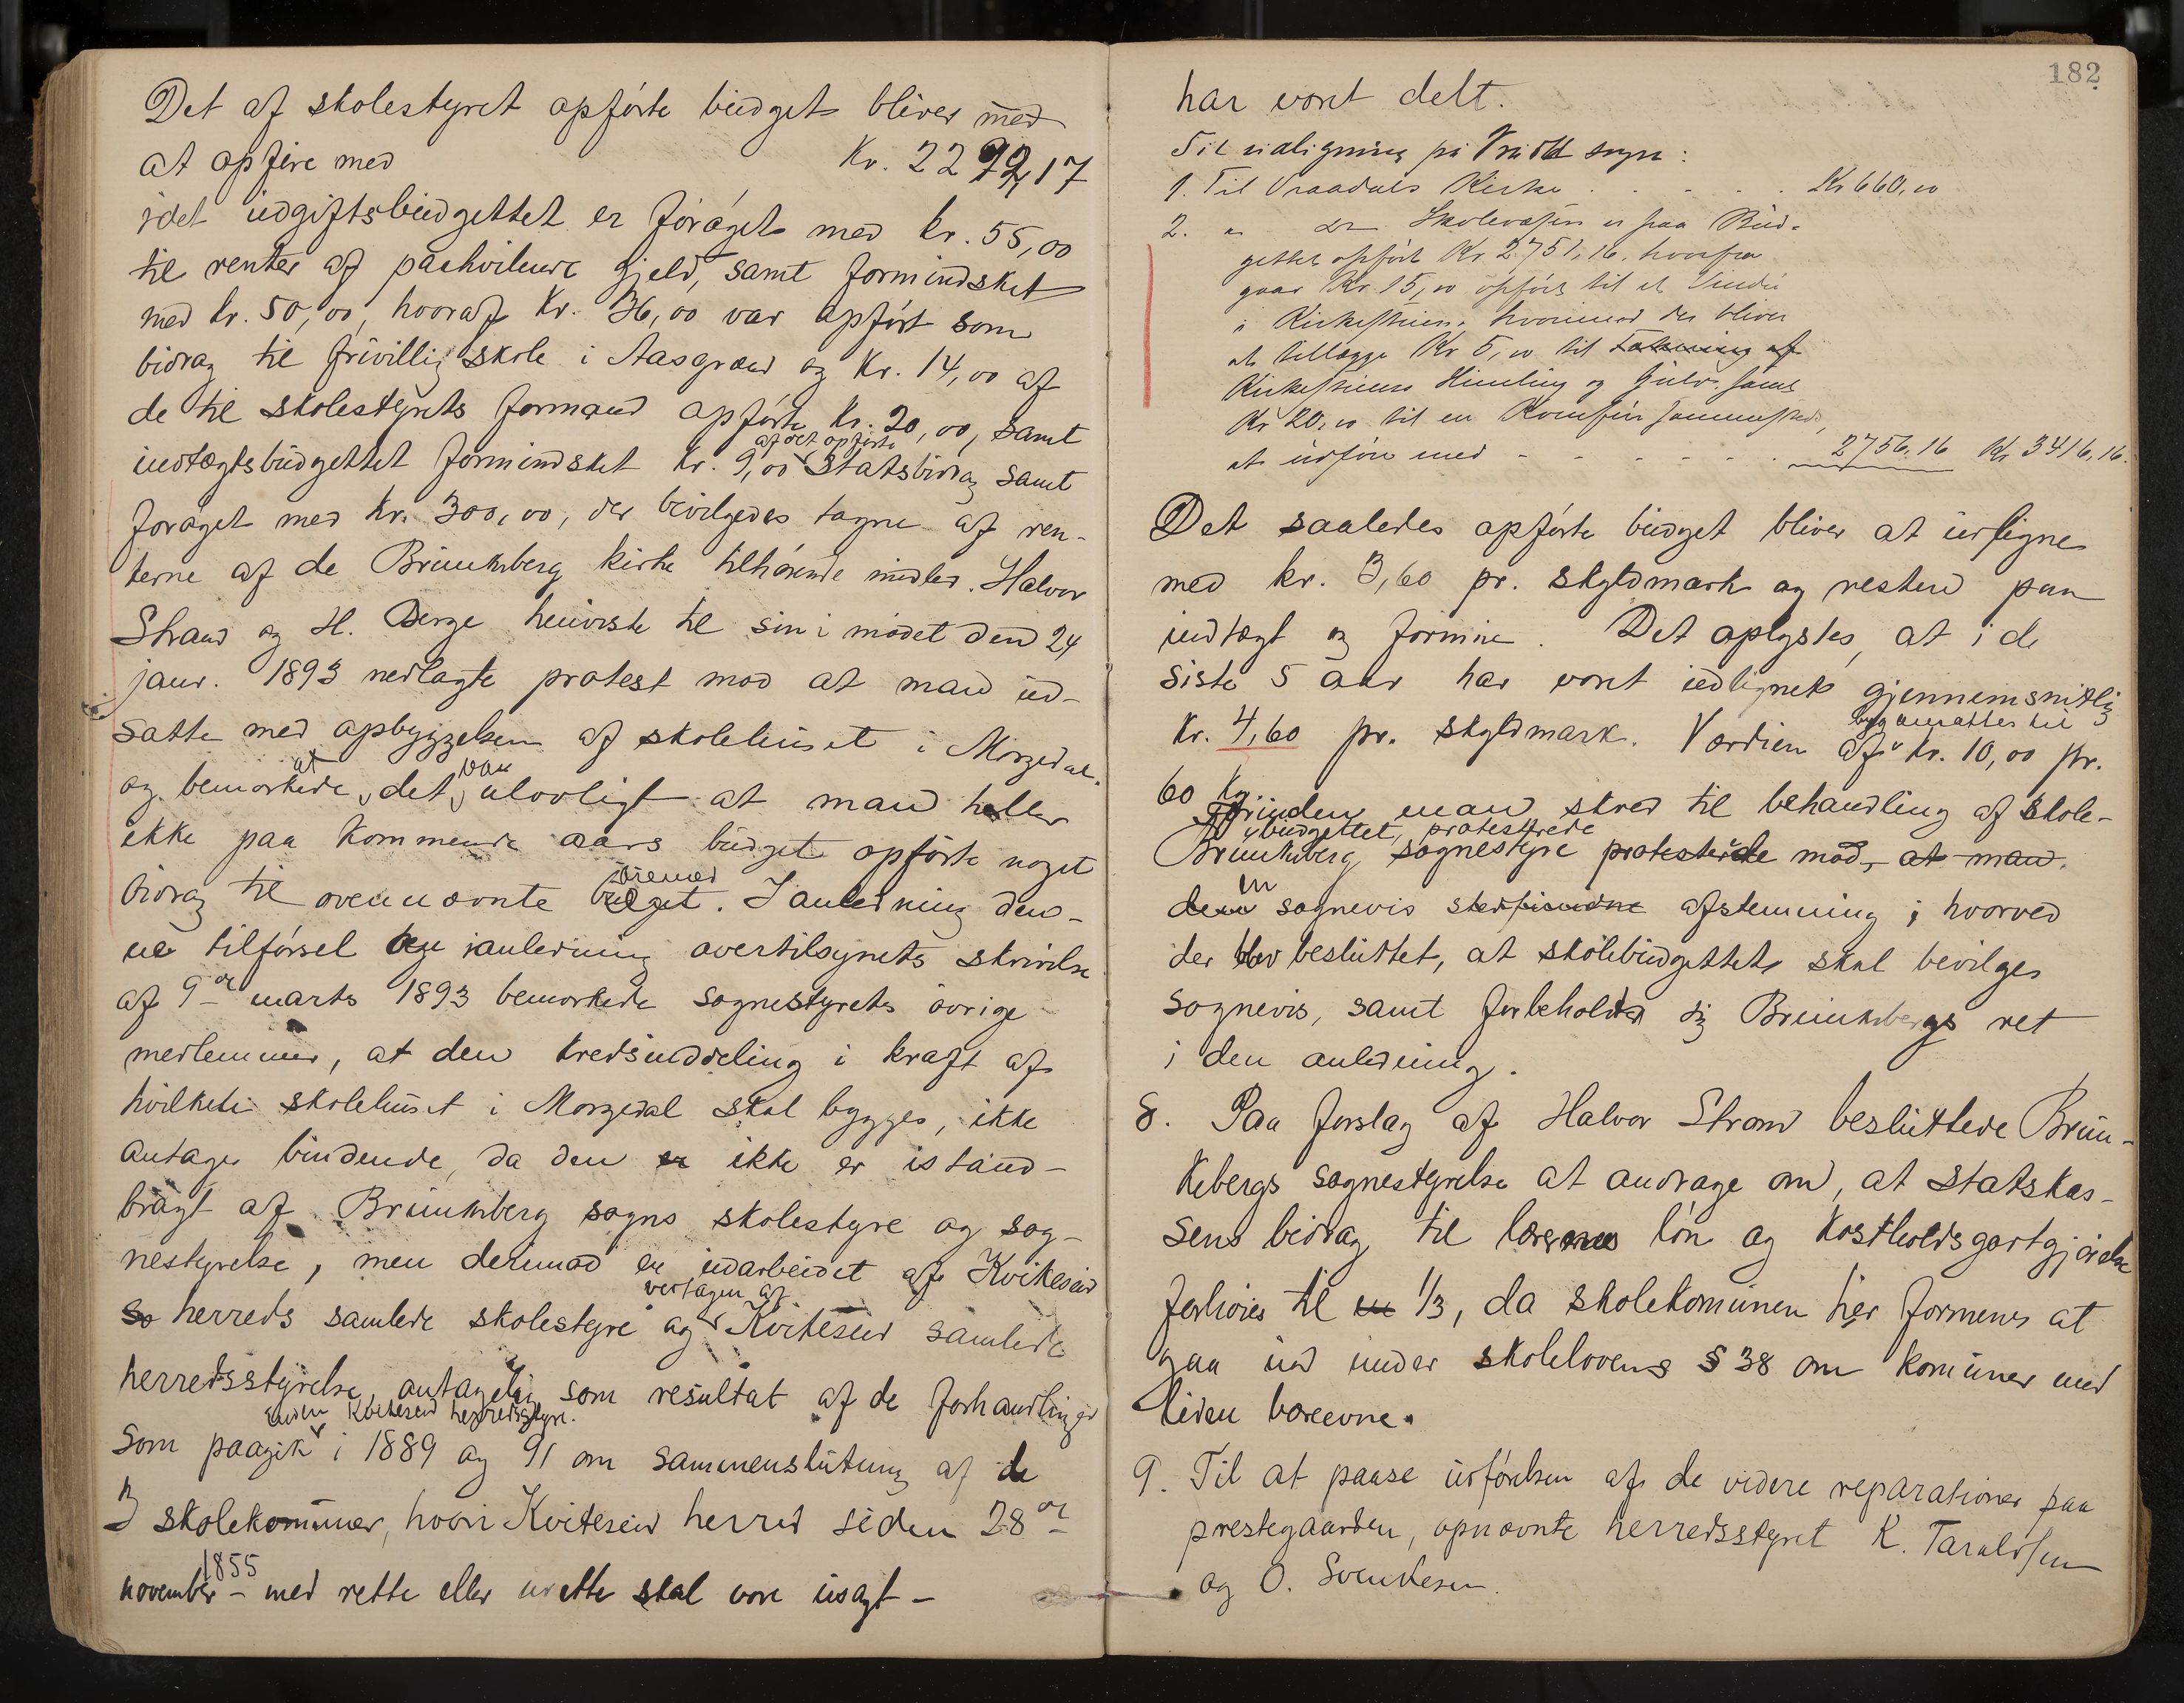 Det af skolestyret opførte budget bliver med
at opføre med Kr. 2292,17
idet udgiftsbudgettet er forøget med kr. 55,00
til renter af paahvilende gjeld, samt formindsket
med kr. 50,00, hvoraf Kr. 36,00 var opført som
bidrag til frivillig skole i Aasgrænd og Kr. 14,00 af
de til skolestyrets formand opførte Kr. 20,00, samt
af det opførte
indtægtsbudgettet formindsket kr. 9,00 Statsbidrag samt
forøget med kr. 300,00, der bevilgedes tagne af ren-
terne af de Brunkeberg kirke tilhørende midler. Halvor
Strand og H. Berge henviste til sin i mødet den 24
janr. 1893 nedlagte protest mod at man ud-
satte med opbyggelsen af skolehuset i Morgedal
at var
og bemærkede, det ulovligt at man heller
ikke paa kommende aars budget opførte noget
øiemed
bidrag til ovennævnte. I anledning den-
ne tilførsel og i anledning overtilsynets skrivelse
af 9de marts 1893 bemærkede sognestyrets øvrige
medlemmer, at den kredsinddeling i kraft af
hvilken skolehuset i Morgedal skal bygges, ikke
antages bindende, da den er ikke er istand-
bragt af Brunkeberg sogns skolestyre og sog-
nestyrelse, men derimod er udarbeidet af Kviteseid
vedtagen af
so herreds samlede skolestyre og Kviteseid samlede
herredsstyrelse, antagelig som resultat af de forhandlinger
inden Kviteseid herredsstyre.
som paagik i 1889 og 91 om sammenslutning af de
3 skolekommuner, hvori Kviteseid herred siden 28de
1855
november – med rette eller urette skal være usagt –
182
har været delt.
Til udligning på Vrådal sogn:
1. Til Vraadals Kirke . . . . . Kr 660,00
2. " do Skolevæsen er paa Bud-
gettet opført Kr 2751,16, hvorfra
gaar Kr. 15,00 opført til et Vindu
i Kirkestuen, hvorimod der bliver
at tillægge Kr 5,00 til
Kirkestuens Himling og Gulv. samt
Kr 20,00 til en Komfur sammesteds,
at udføre med - - - - - 2756,16 Kr 3416,16.
Det saaledes opførte budget bliver at udligne
med kr. 3,60 pr. skyldmark og resten paa
indtægt og formue. Det oplystes, at i de
siste 5 aar har været udlignet gjennemsnitlig
byg ansattes til
Kr. 4,60 pr. skyldmark. Værdien af kr. 10,00 pr.
60 Kg.
Forinden man skred til behandling af skole-
budgettet, protesterede
Brunkeberg sognestyre protesterede mod, at man
en
den sognevis stedfindene afstemning, hvorved
der blev besluttet, at skolebudgettet skal bevilges
sognevis, samt forbeholdt sig Brunkebergs ret
i den anledning.
8. Paa forslag af Halvor Strand besluttede Brun-
kebergs sognestyrelse at andrage om, at statskas-
sens bidrag til lærernes løn og kostholdsgodtgjørelse
forhøies til en 1/3, da skolekommunen her formenes at
gaa ind under skolelovens § 38 om kommuner med
liden bæreevne.
9. Til at paase udførelsen af de videre reparationer paa
prestegaarden, opnævnte herredsstyret K. Taraldsen
og O. Svendsen.